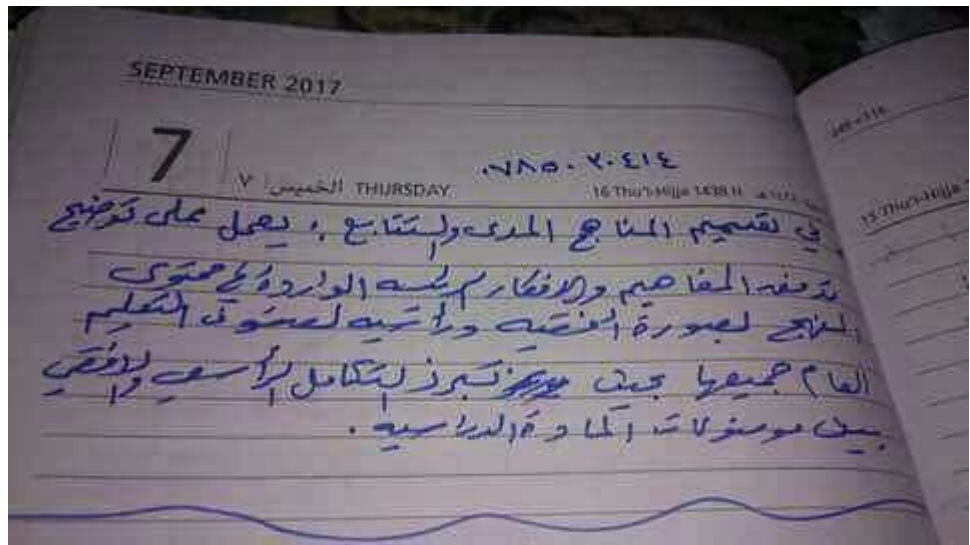 SEPTEMBER 2017
7
٠٧٨٥٠٢٠٤١٤
الخميس ٧ THURSDAY 16 Thu'l-Hijja 1438 H
في تقسيم المناهج المدى والتتابع : يعمل على توضيح
المفاهيم والافكار الواردة في محتوى
المنهج لصورة افقيه ورأسيه لصفوف التعليم
العام جميعها بحيث تبرز التكامل الرأسي والافقي
بين موضوعات المادة الدراسيه .